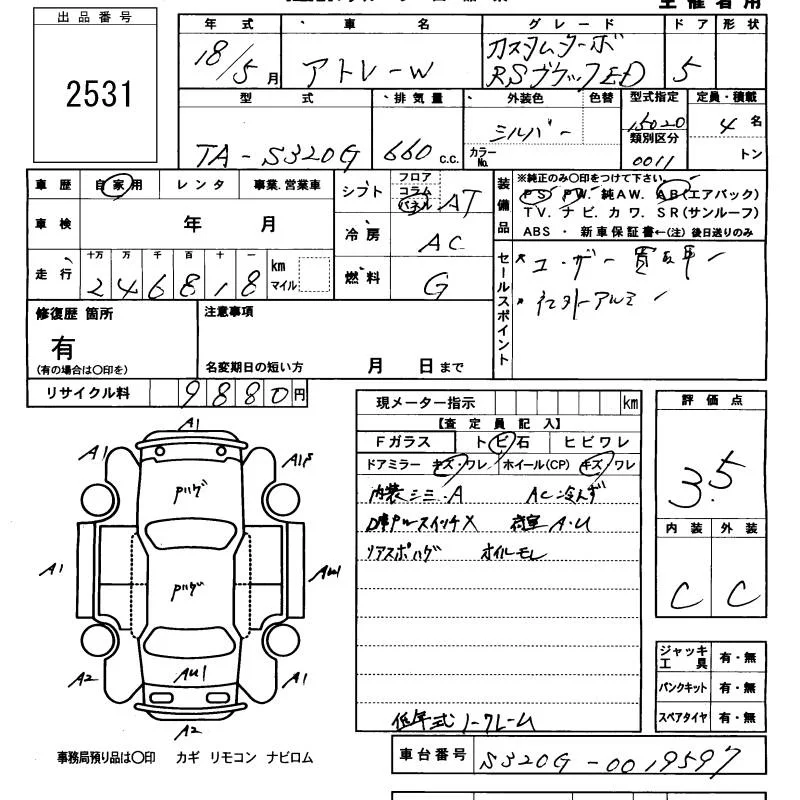 主催者用
出品番号
2531
年式 車名 グレード ドア 形状
18/5月 アトレーW カスタムターボ
RS 5
型式 排気量 外装色 色替 型式指定 定員・積載
TA-S320G 660 c.c. シルバー カラーNo. 15020 4名
類別区分
0011 トン
車歴 自家用 レンタ 事業.営業車
シフト フロア
コラム
パネル AT
装備品 ※純正のみ〇印をつけて下さい。
PS PW. 純AW. AB(エアバック)
TV. ナビ. カワ. SR(サンルーフ)
ABS ・ 新車保証書←(注) 後日送りのみ
車検 年 月
冷房 AC
走行 十万 万 千 百 十 一
246818 km
マイル
燃料 G
セールスポイント
ユーザー買取車
社外アルミ
修復歴 箇所
有
(有の場合は〇印を)
注意事項
名変期日の短い方 月 日まで
リサイクル料 9880円
現メーター指示 km
【査定員記入】
Fガラス トビ石 ヒビワレ
ドアミラー キズ・ワレ ホイール(CP) キズ・ワレ
内装シミ.A AC冷えず
スイッチX 荷室 A.U
リアスポハゲ オイルモレ
低年式ノークレーム
評価点
3.5
内装 外装
C C
A1
A1 A1
Pハゲ
A1 AU1
Pハゲ
A2 AU1 A1
A2
ジャッキ
工具 有・無
パンクキット 有・無
スペアタイヤ 有・無
事務局預り品は〇印 カギ リモコン ナビロム
車台番号 S320G-0019597